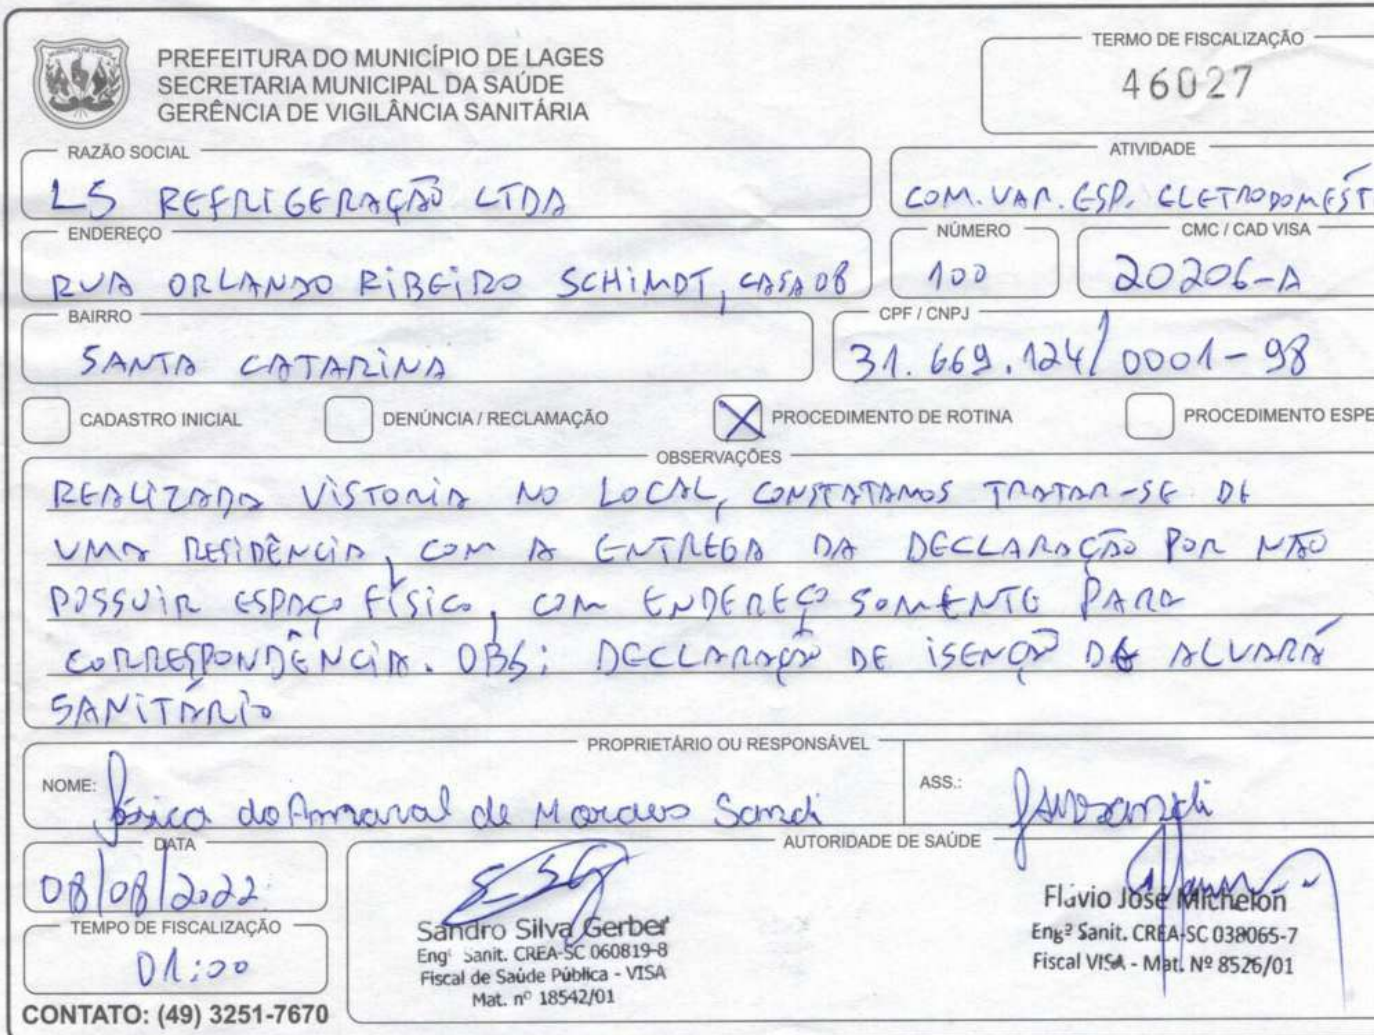 PREFEITURA DO MUNICÍPIO DE LAGES
SECRETARIA MUNICIPAL DA SAÚDE
GERÊNCIA DE VIGILÂNCIA SANITÁRIA
TERMO DE FISCALIZAÇÃO
46027
RAZÃO SOCIAL
LS REFRIGERAÇÃO LTDA
ATIVIDADE
COM. VAR. ESP. ELETRODOMÉST
ENDEREÇO
RUA ORLANDO RIBEIRO SCHIMDT, CASA 08
NÚMERO
100
CMC / CAD VISA
20206-A
BAIRRO
SANTA CATARINA
CPF / CNPJ
31.669.124/0001-98
CADASTRO INICIAL DENÚNCIA / RECLAMAÇÃO X PROCEDIMENTO DE ROTINA PROCEDIMENTO ESPE
OBSERVAÇÕES
REALIZADA VISTORIA NO LOCAL, CONSTATAMOS TRATAR-SE DE
UMA RESIDÊNCIA, COM A ENTREGA DA DECLARAÇÃO POR NÃO
POSSUIR ESPAÇO FÍSICO, COM ENDEREÇO SOMENTE PARA
CORRESPONDÊNCIA. OBS: DECLARAÇÃO DE ISENÇÃO DE ALVARÁ
SANITÁRIO
PROPRIETÁRIO OU RESPONSÁVEL
NOME: Jéssica do Amaral de Moraes Sandi
ASS.:
DATA
08/08/2022
AUTORIDADE DE SAÚDE
TEMPO DE FISCALIZAÇÃO
01:00
CONTATO: (49) 3251-7670
Sandro Silva Gerber
Engº Sanit. CREA-SC 060819-8
Fiscal de Saúde Pública - VISA
Mat. nº 18542/01
Flávio José Michelon
Engº Sanit. CREA-SC 038065-7
Fiscal VISA - Mat. Nº 8526/01